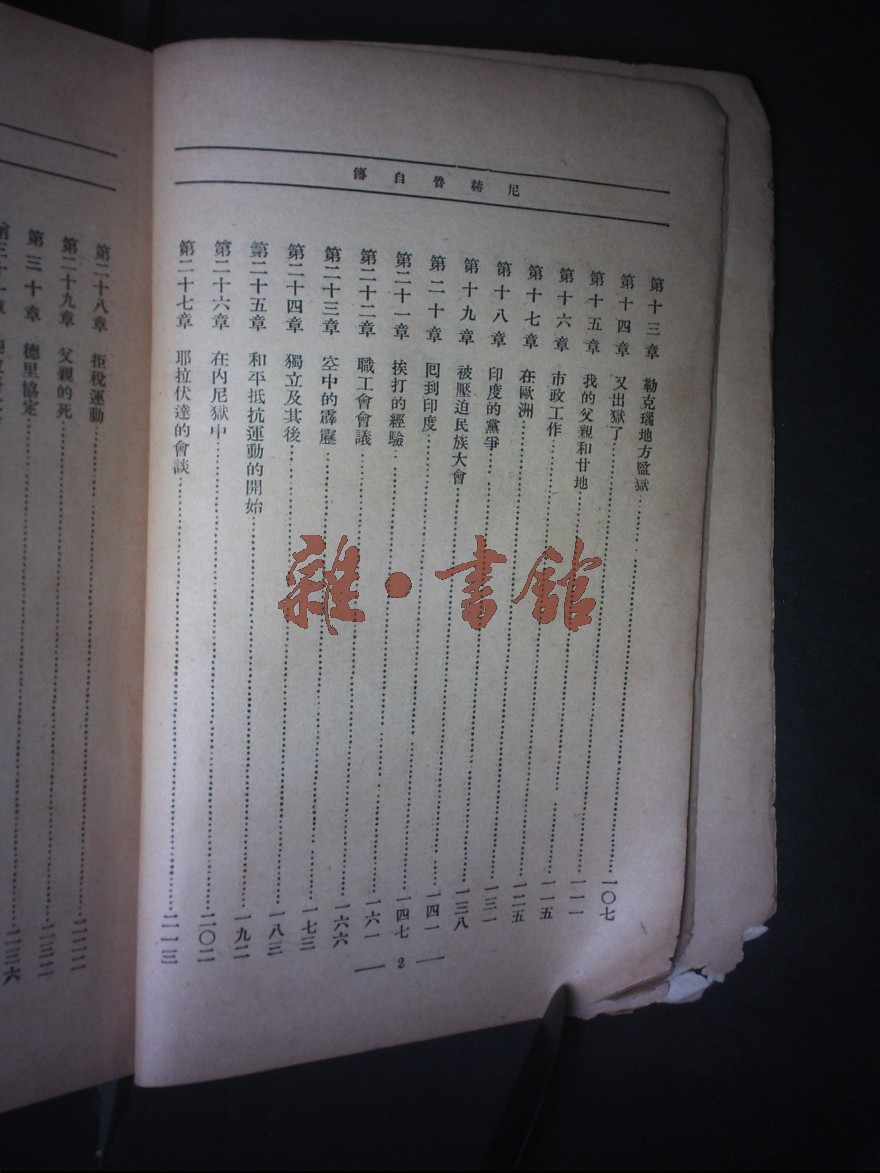 尼赫魯自傳
第十三章 勒克瑙地方監獄……一〇七
第十四章 又出獄了……一一一
第十五章 我的父親和甘地……一一五
第十六章 市政工作……一二五
第十七章 在歐洲……一三一
第十八章 印度的黨爭……一三八
第十九章 被壓迫民族大會……一四一
第二十章 回到印度……一四七
第二十一章 挨打的經驗……一六一
第二十二章 職工會會議……一六六
第二十三章 空中的霹靂……一七三
第二十四章 獨立及其後……一八三
第二十五章 和平抵抗運動的開始……一九二
第二十六章 在內尼獄中……二〇二
第二十七章 耶拉伏達的會談……二一三
2
第二十八章 拒稅運動……二二二
第二十九章 父親的死……二三二
第三十章 德里協定……二三六
雜·書館